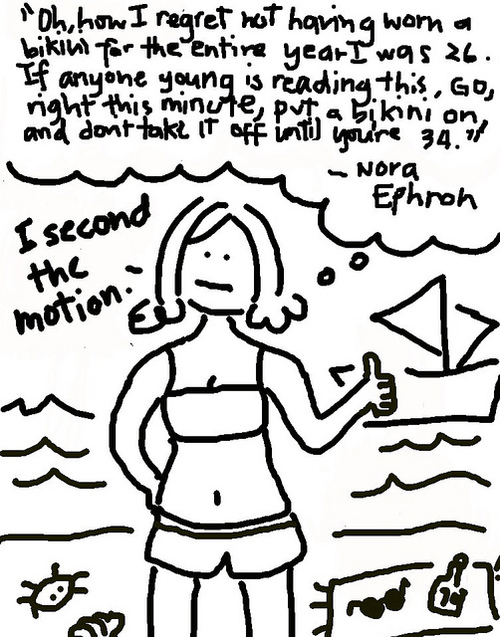 "Oh, how I regret not having worn a
bikini for the entire year I was 26.
If anyone young is reading this, Go,
right this minute, put a bikini on,
and dont take it off until you're 34."
- Nora
Ephron
I second
the
motion.